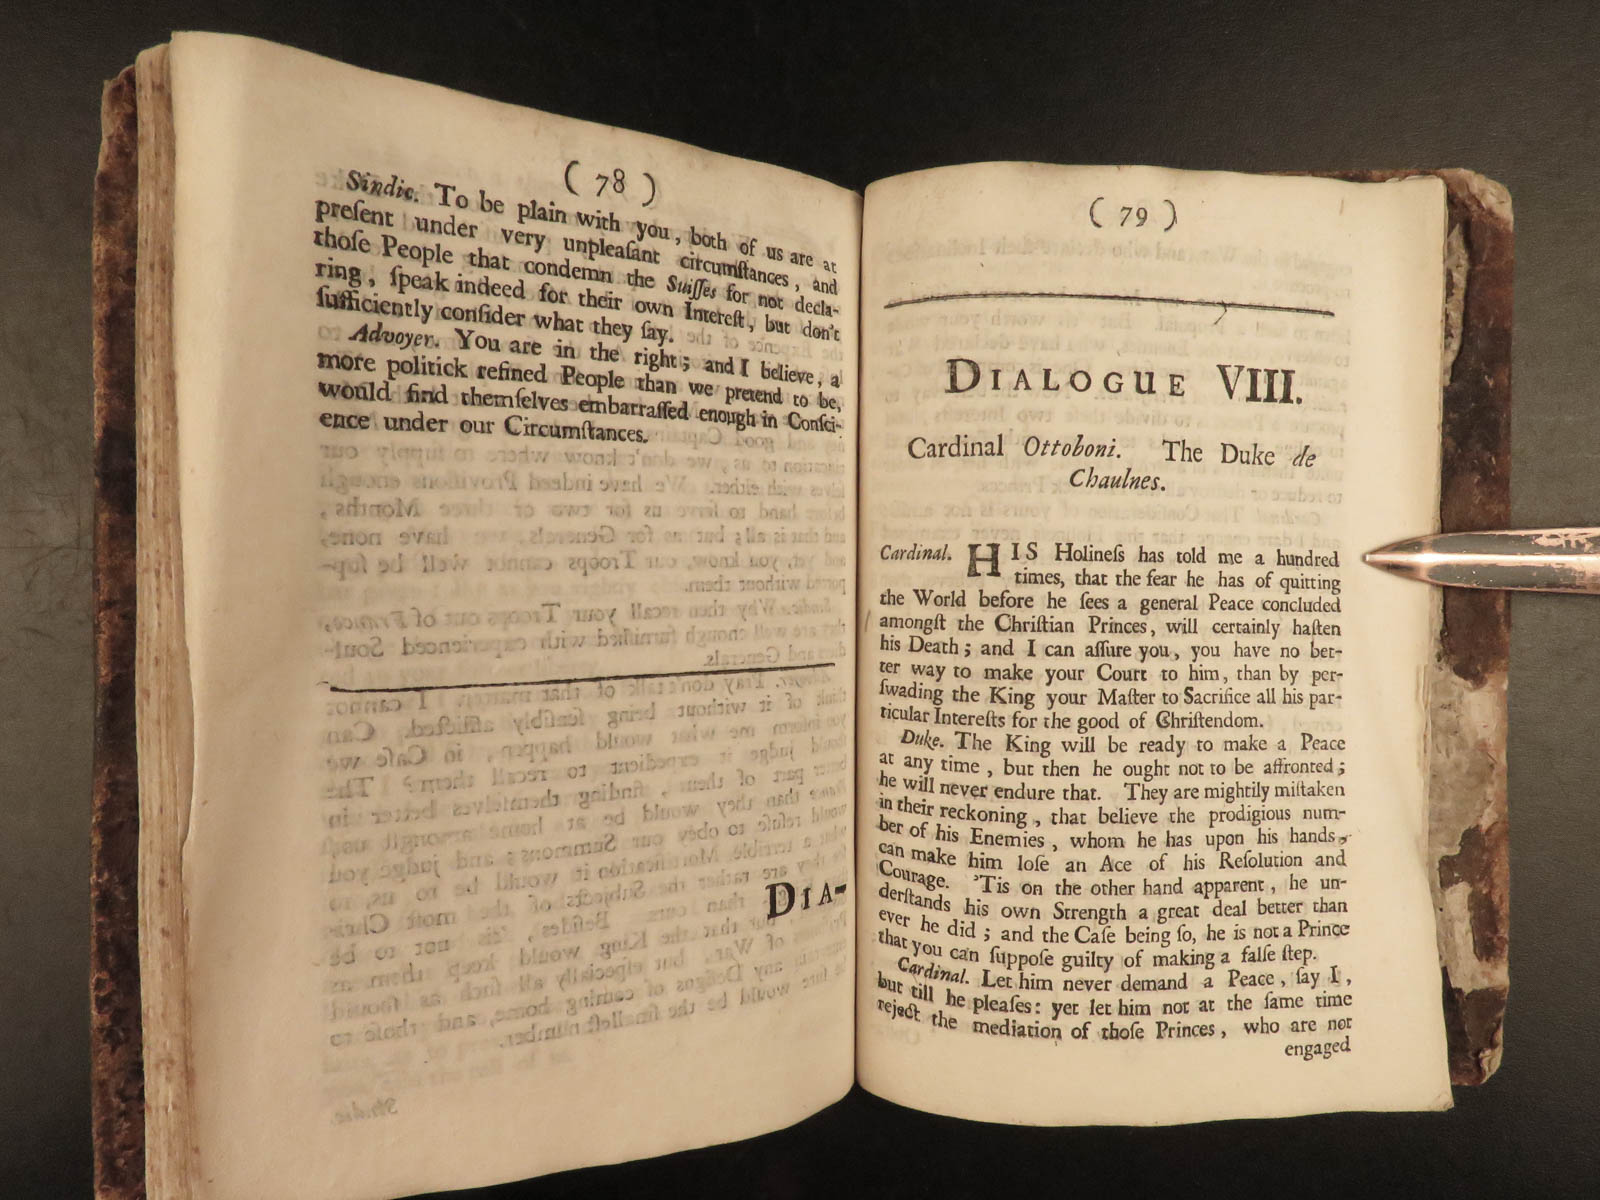 ( 78 )
Sindic. To be plain with you, both of us are at
preſent under very unpleaſant circumſtances, and
thoſe People that condemn the Suiſſes for not decla-
ring, ſpeak indeed for their own Intereſt, but don't
ſufficiently conſider what they ſay.
Advoyer. You are in the right; and I believe, a
more politick refined People than we pretend to be,
would find themſelves embarraſſed enough in Conſci-
ence under our Circumſtances.
DIA-
( 79 )
DIALOGUE VIII.
Cardinal Ottoboni. The Duke de
Chaulnes.
Cardinal. HIS Holineſs has told me a hundred
times, that the fear he has of quitting
the World before he ſees a general Peace concluded
amongſt the Chriſtian Princes, will certainly haſten
his Death; and I can aſſure you, you have no bet-
ter way to make your Court to him, than by per-
ſwading the King your Maſter to Sacrifice all his par-
ticular Intereſts for the good of Chriſtendom.
Duke. The King will be ready to make a Peace
at any time, but then he ought not to be affronted;
he will never endure that. They are mightily miſtaken
in their reckoning, that believe the prodigious num-
ber of his Enemies, whom he has upon his hands,
can make him loſe an Ace of his Reſolution and
Courage. 'Tis on the other hand apparent, he un-
derſtands his own Strength a great deal better than
ever he did; and the Caſe being ſo, he is not a Prince
that you can ſuppoſe guilty of making a falſe ſtep.
Cardinal. Let him never demand a Peace, ſay I,
but till he pleaſes: yet let him not at the ſame time
reject the mediation of thoſe Princes, who are not
engaged